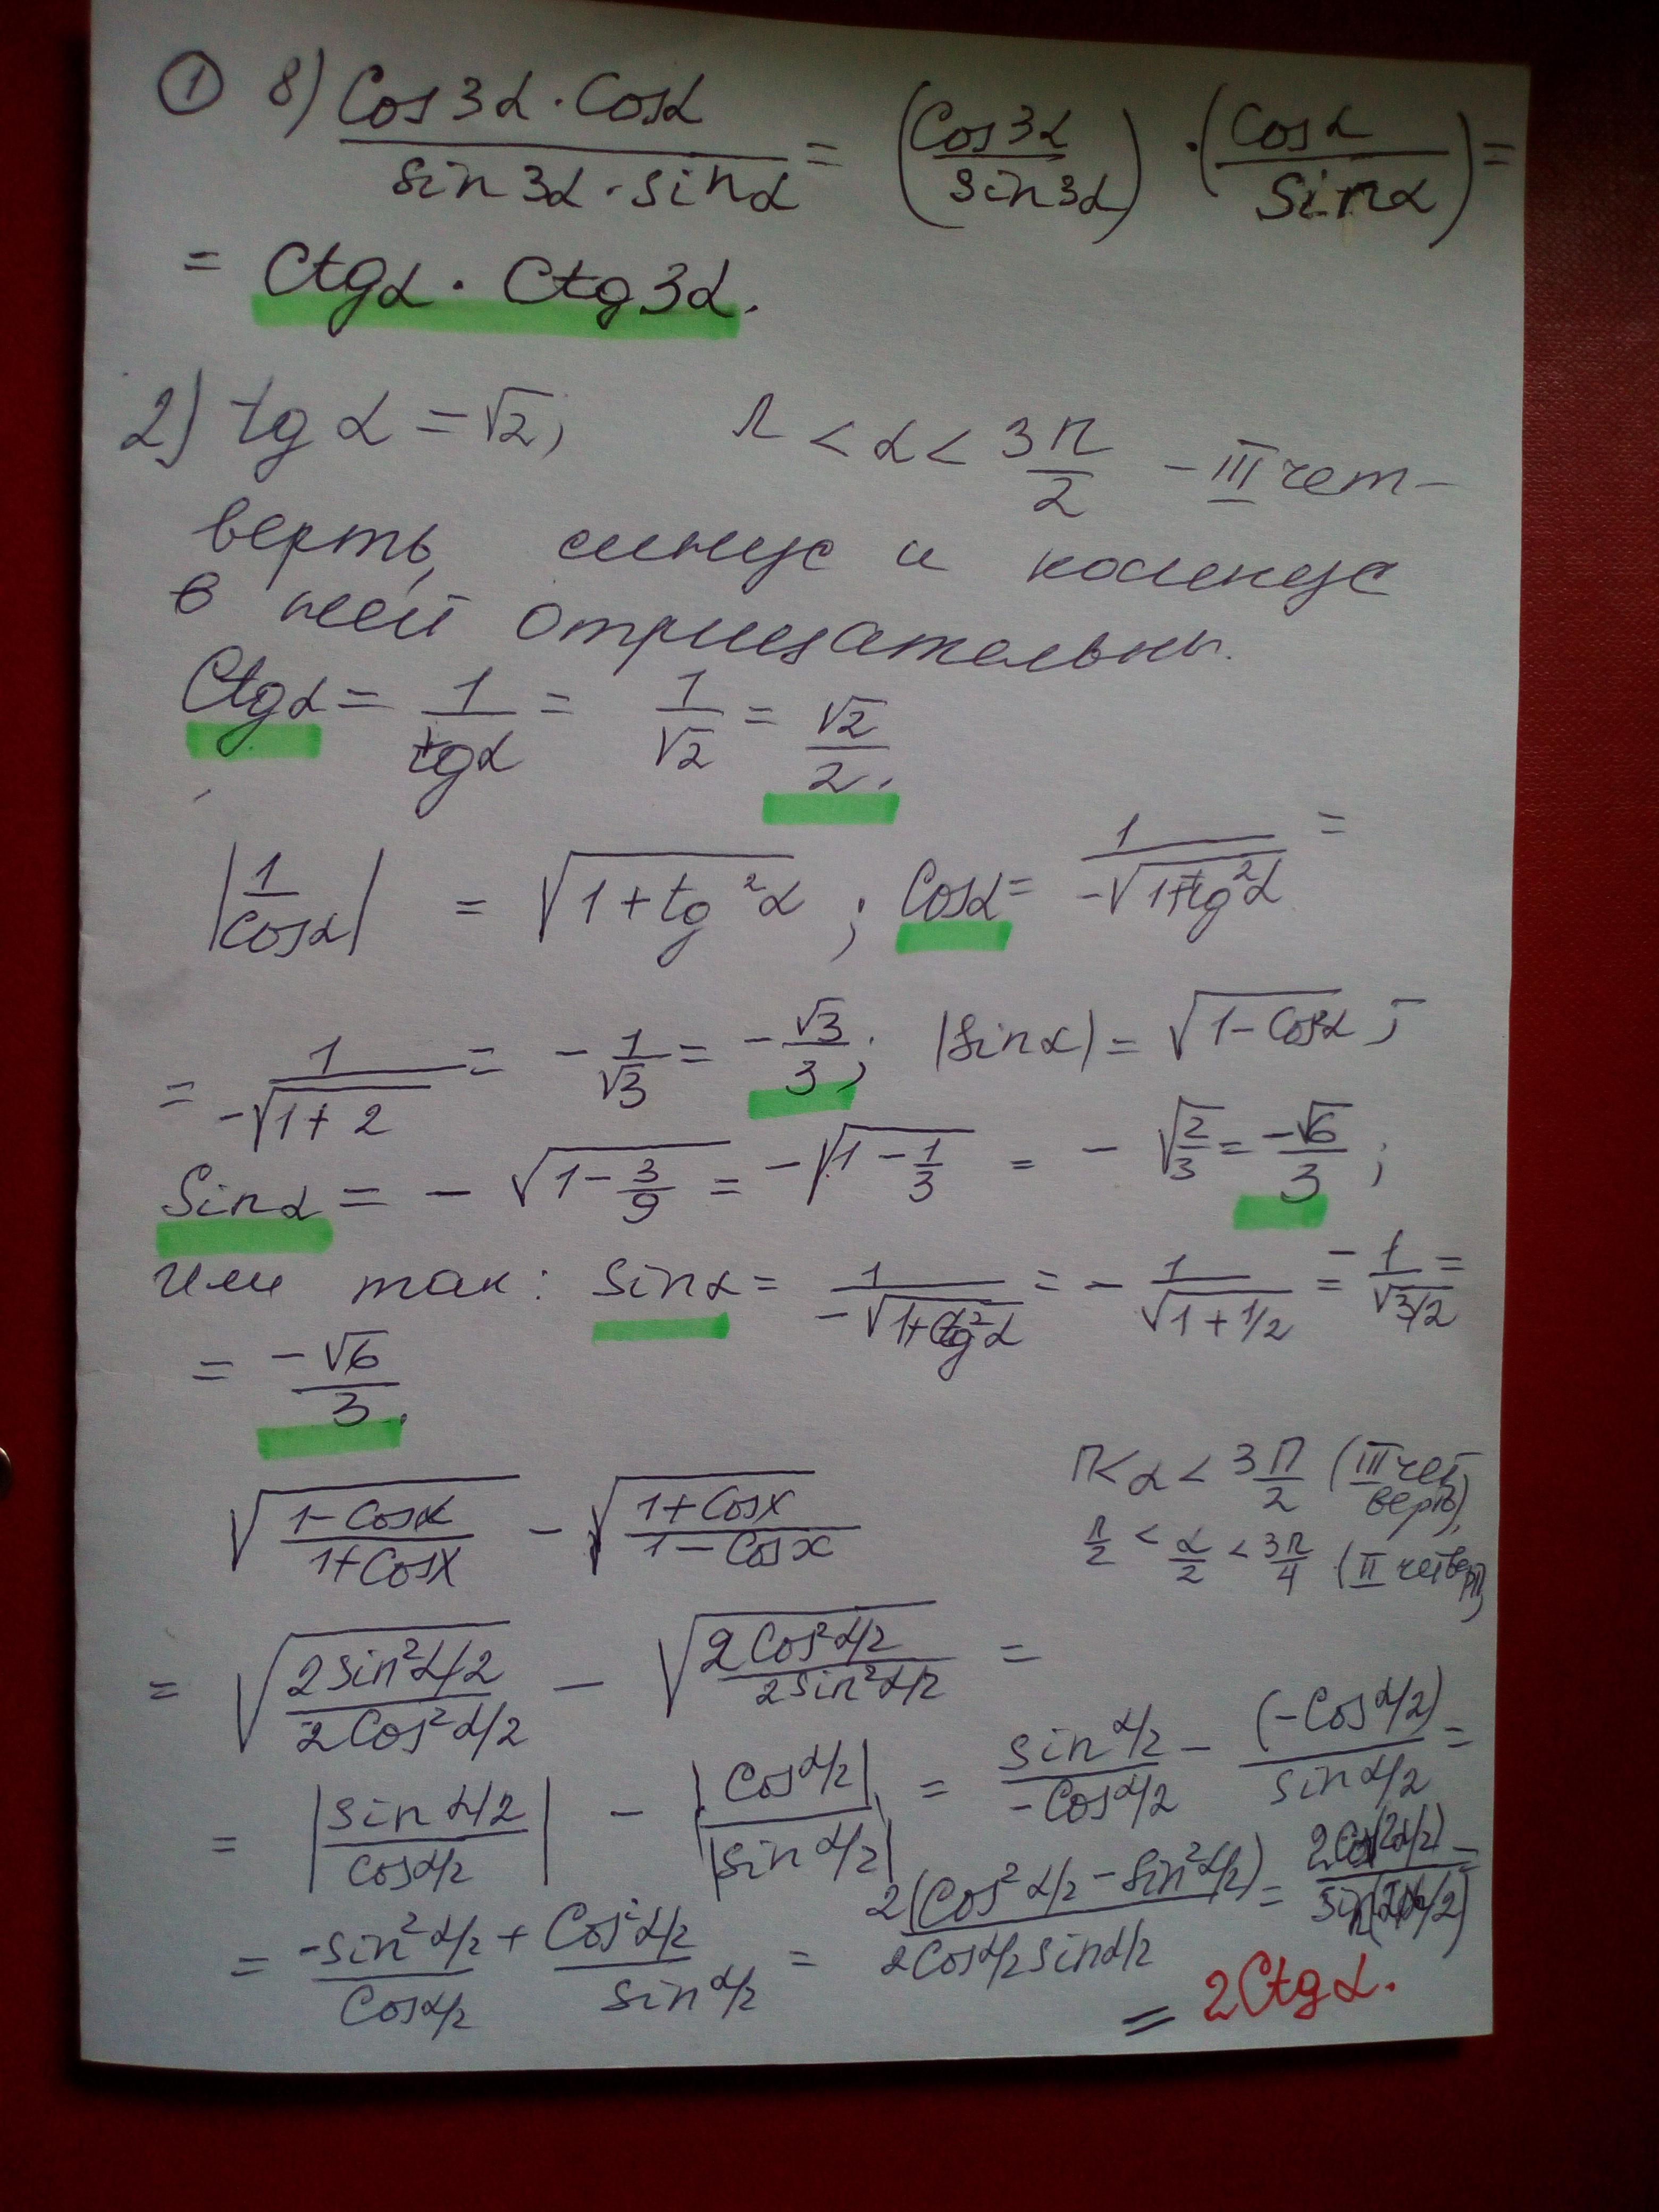 ① 8) Cos3α · Cosα / sin3α · sinα = (Cos3α / sin3α) · (Cosα / Sinα) =
= Ctgα · Ctg3α.
2) tg α = √2; π < α < 3π/2 – III чет–
верть, синус и косинус
в ней отрицательны.
Ctgα = 1/tgα = 1/√2 = √2/2.
|1/cosα| = √(1+tg²α) ; Cosα = 1/(-√(1+tg²α)) =
= 1/(-√(1+2)) = -1/√3 = -√3/3; |sinα| = √(1-Cosα);
Sinα = -√(1-3/9) = -√(1-1/3) = -√(2/3) = -√6/3;
или так: sinα = 1/(-√(1+ctg²α)) = -1/√(1+1/2) = -1/√(3/2) =
= -√6/3.
√((1-Cosx)/(1+Cosx)) - √((1+Cosx)/(1-Cosx))
π<α<3π/2 (III чет
верть),
π/2 < α/2 < 3π/4 (II четверть)
= √(2sin²α/2 / 2Cos²α/2) - √(2Cos²α/2 / 2sin²α/2) =
= |sin α/2 / cosα/2| - |Cosα/2| / |sinα/2| = sin α/2 / -Cosα/2 - (-Cosα/2) / sinα/2 =
= -sin²α/2 / Cosα/2 + Cos²α/2 / sinα/2 = 2(Cos²α/2 - sin²α/2) / 2Cosα/2 sinα/2 = 2Cos(2α/2) / sin(2α/2) =
= 2Ctgα.